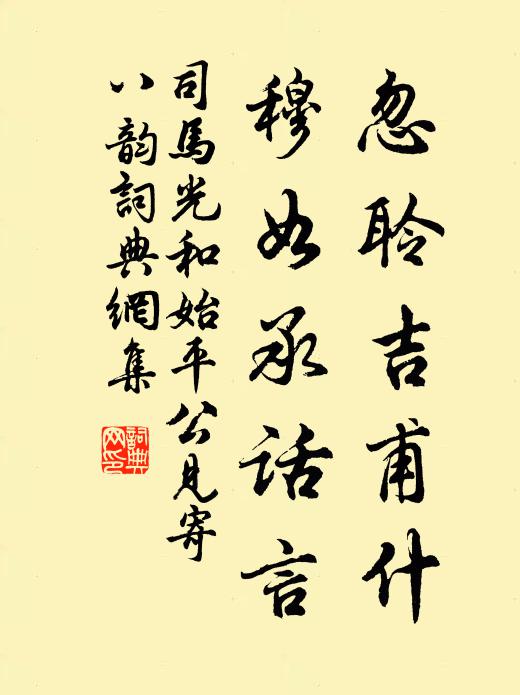 忽聆吉甫什
穆如承話言
司馬光和始平公見寄
八韵詞典網集
詞典網印